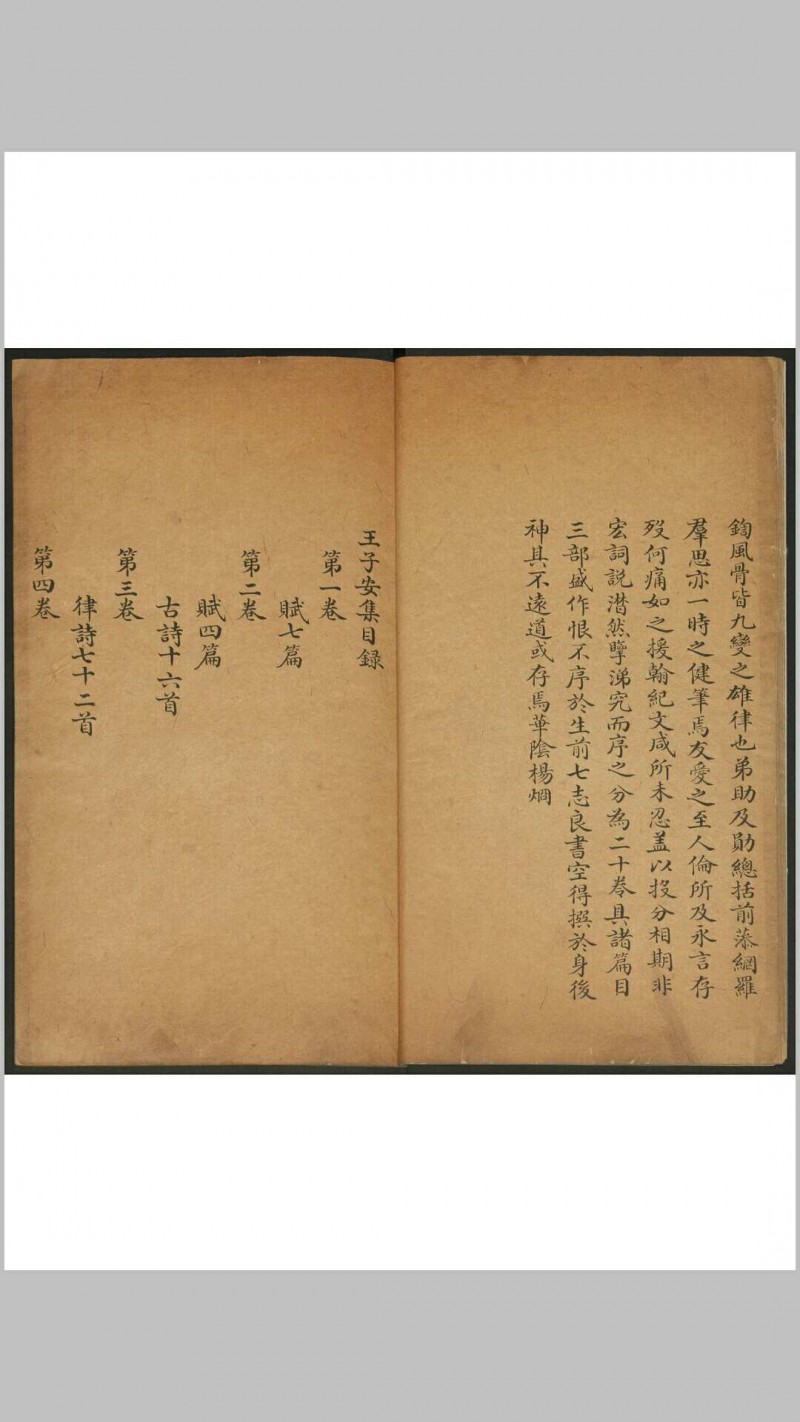 鈞風骨皆九變之雄律也弟助及勛總括前蓀網羅
羣思亦一時之健筆焉友愛之至人倫所及永言存
歿何痛如之援翰紀文咸所未忍盖以投分相期非
宏詞説潸然擥涕究而序之分為二十卷具諸篇目
三部盛作恨不序於生前七志良書空得撰於身後
神其不遠道或存焉華陰楊烱
王子安集目録
第一卷
賦七篇
第二卷
賦四篇
古詩十六首
第三卷
律詩七十二首
第四卷